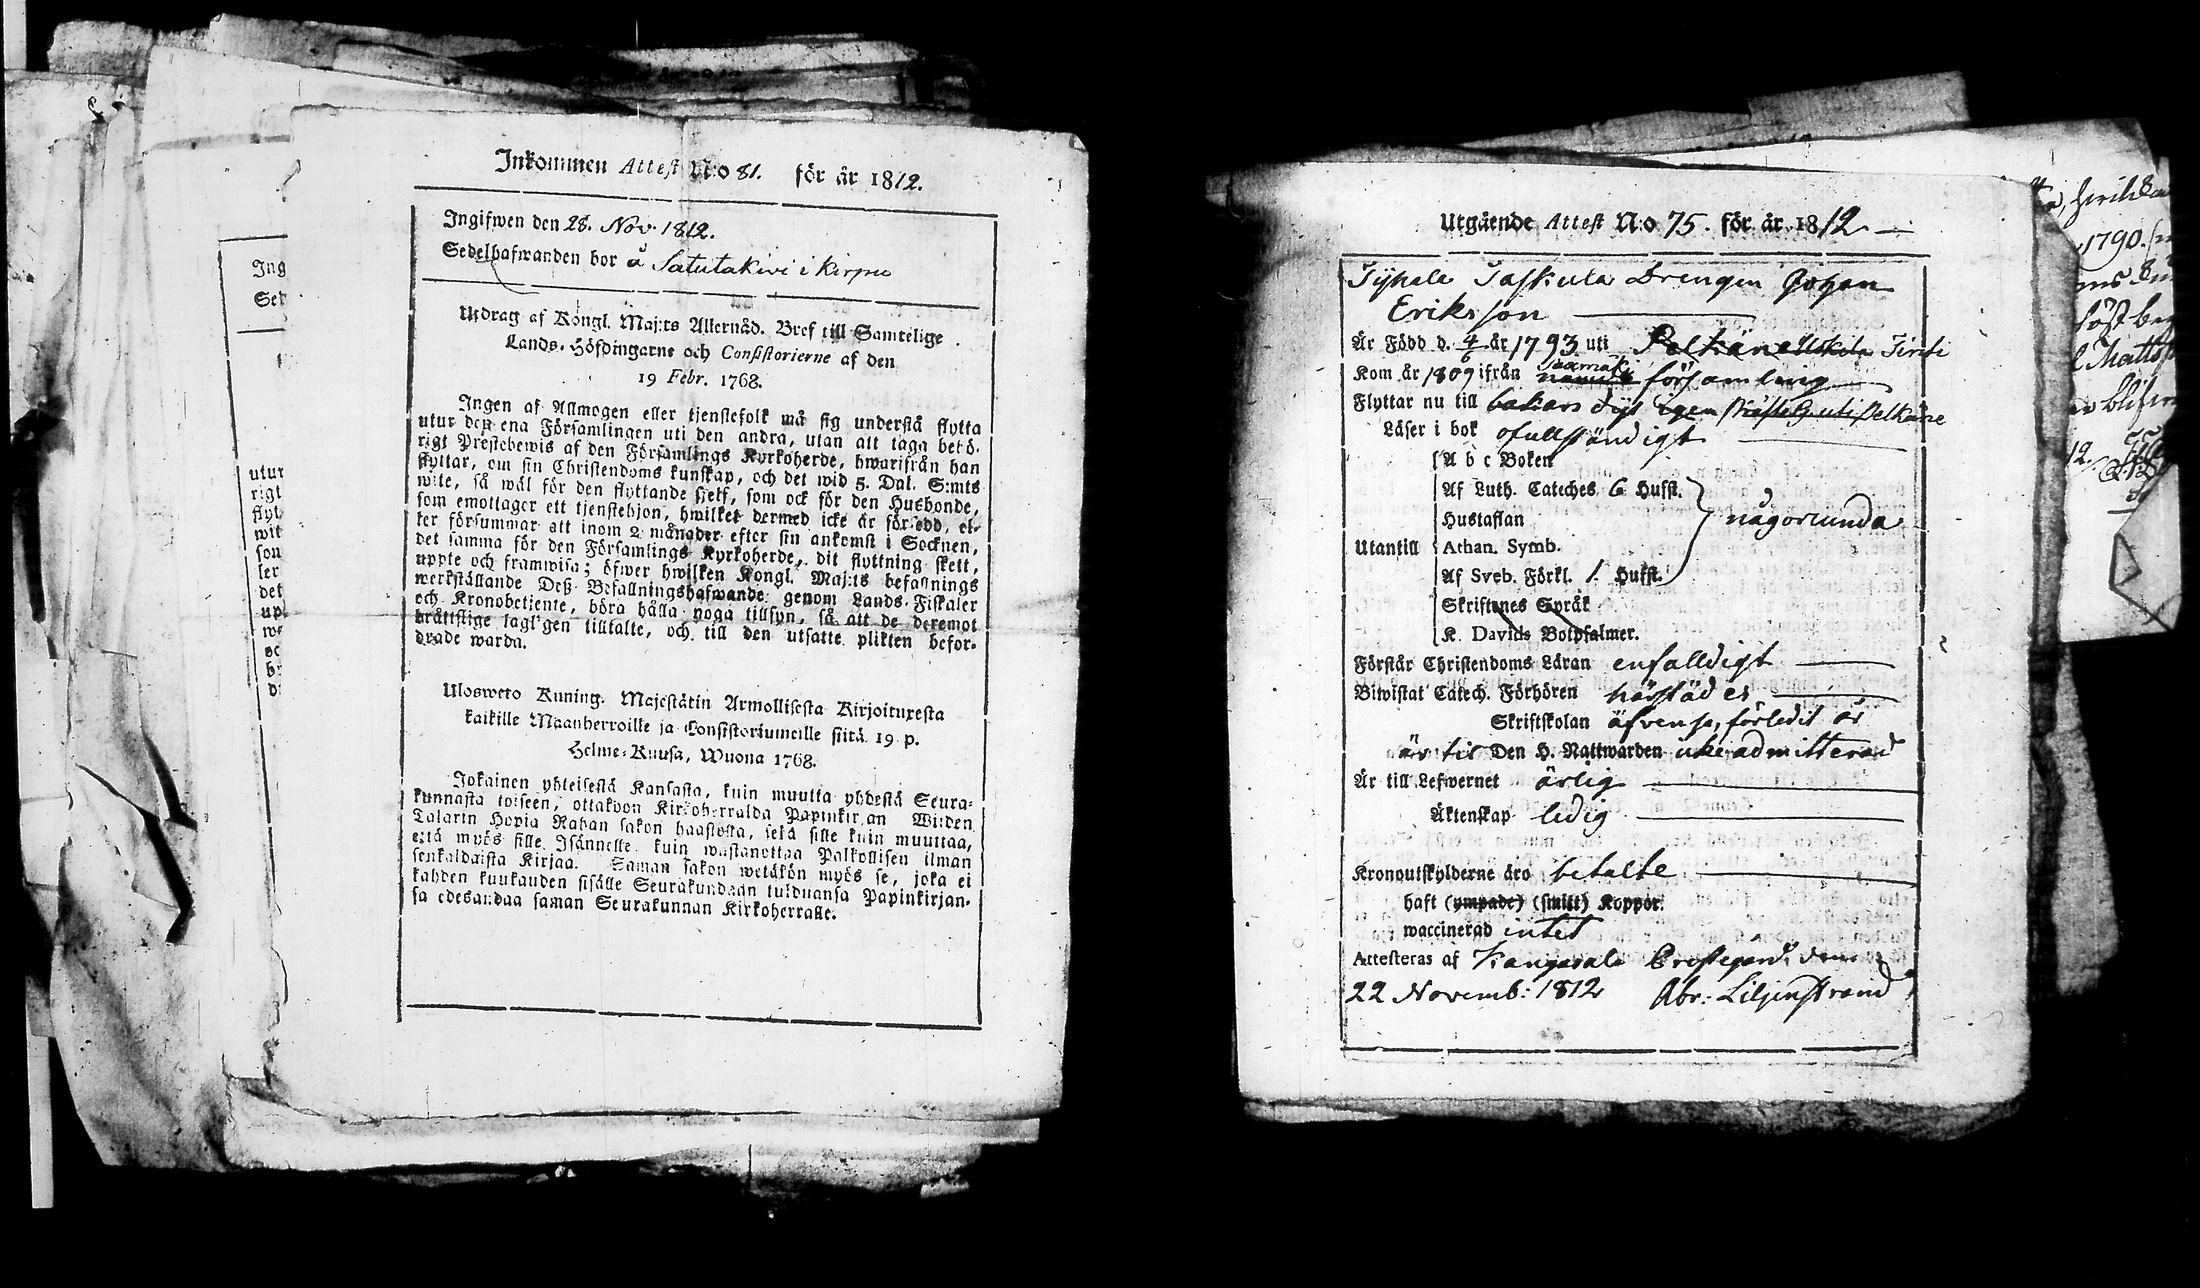 Inkommen Attest N:o 81. för år 1812.
Ingifwen den 28. Nov. 1812.
Sedelhafwanden bor å Satutakivi i Kirpu
Utdrag af Kongl. Maj:ts Allernåd. Bref till Samtelige
Lands-Höfdingarne och Consistorierne af den
19 Febr. 1768.
Ingen af Allmogen eller tjenstefolk må sig understå flytta
utur den ena Församlingen uti den andra, utan att taga behö-
rigt Prestebewis af den Församlings Kyrkoherde, hwarifrån han
flyttar, om sin Christendoms kunskap, och det wid 5. Dal. S:mts
wite, så wäl för den flyttande sjelf, som ock för den Husbonde,
som emottager ett tjenstehjon, hwilket dermed icke är försedd, el-
ler försummar att inom 2 månader efter sin ankomst i Socknen,
det samma för den Församlings Kyrkoherde, dit flyttning skett,
uppte och framwisa; öfwer hwilken Kongl. Maj:ts befallnings
werkställande Deß Befallningshafwande genom Lands-Fiskaler
och Kronobetjente, böra hålla noga tillsyn, så att de deremot
bråttslige lagligen tilltalte, och till den utsatte plikten befor-
drade warda.
Ulosweto Kuning. Majestätin Armollisesta Kirjoituxesta
kaikille Maanherroille ja Consistoriumeille siitä 19 p.
Helme-Kuusa, Wuona 1768.
Jokainen yhteisestä Kansasta, kuin muutta yhdestä Seura-
kunnasta toiseen, ottakoon Kirkoherralda Papinkirjan Wijden
Talarin Hopia Rahan sakon haastolla, sekä sille kuin muuttaa,
että myös sille Isännelle kuin wastanottaa Palkollisen ilman
senkaldaista Kirjaa. Saman sakon wetäkön myös se, joka ei
kahden kuukauden sisälle Seurakundaan tulduansa Papinkirjan-
sa edesandaa saman Seurakunnan Kirkoherralle.
Ing
Sed
utur
rigt
flyt
wit
som
ler
det
up
we
oc
br
dr
Utgående Attest N:o 75. för år 1812
Taskula Drengen Johan
Eriksson
Är Född d. 4/6 år 1793 uti Pelkäne
Kom år 1809 ifrån församling
Flyttar nu till igen uti Pelkäne
Läser i bok ofullständigt
A b c Boken
Af Luth. Cateches 6 Hufst.
Hustaflan någorlunda
Utantill Athan. Symb.
Af Sveb. Förkl. 1. Hufst.
Skriftenes Språk
K. Davids Botpsalmer.
Förstår Christendoms Läran enfalldigt
Biwistat Catech. Förhören härstädes
Skriftskolan äfvenså, förledit år
är til Den H. Nattwarden icke admitterad
Är till Lefwernet ärlig
Äktenskap ledig
Kronoutskylderne äro betalte
haft (ympade) (smitt) Koppor.
waccinerad intet
Attesteras af Kangasala Prestegård, den
22 Novemb: 1812 Abr: Liljenstrand
1790.
12.